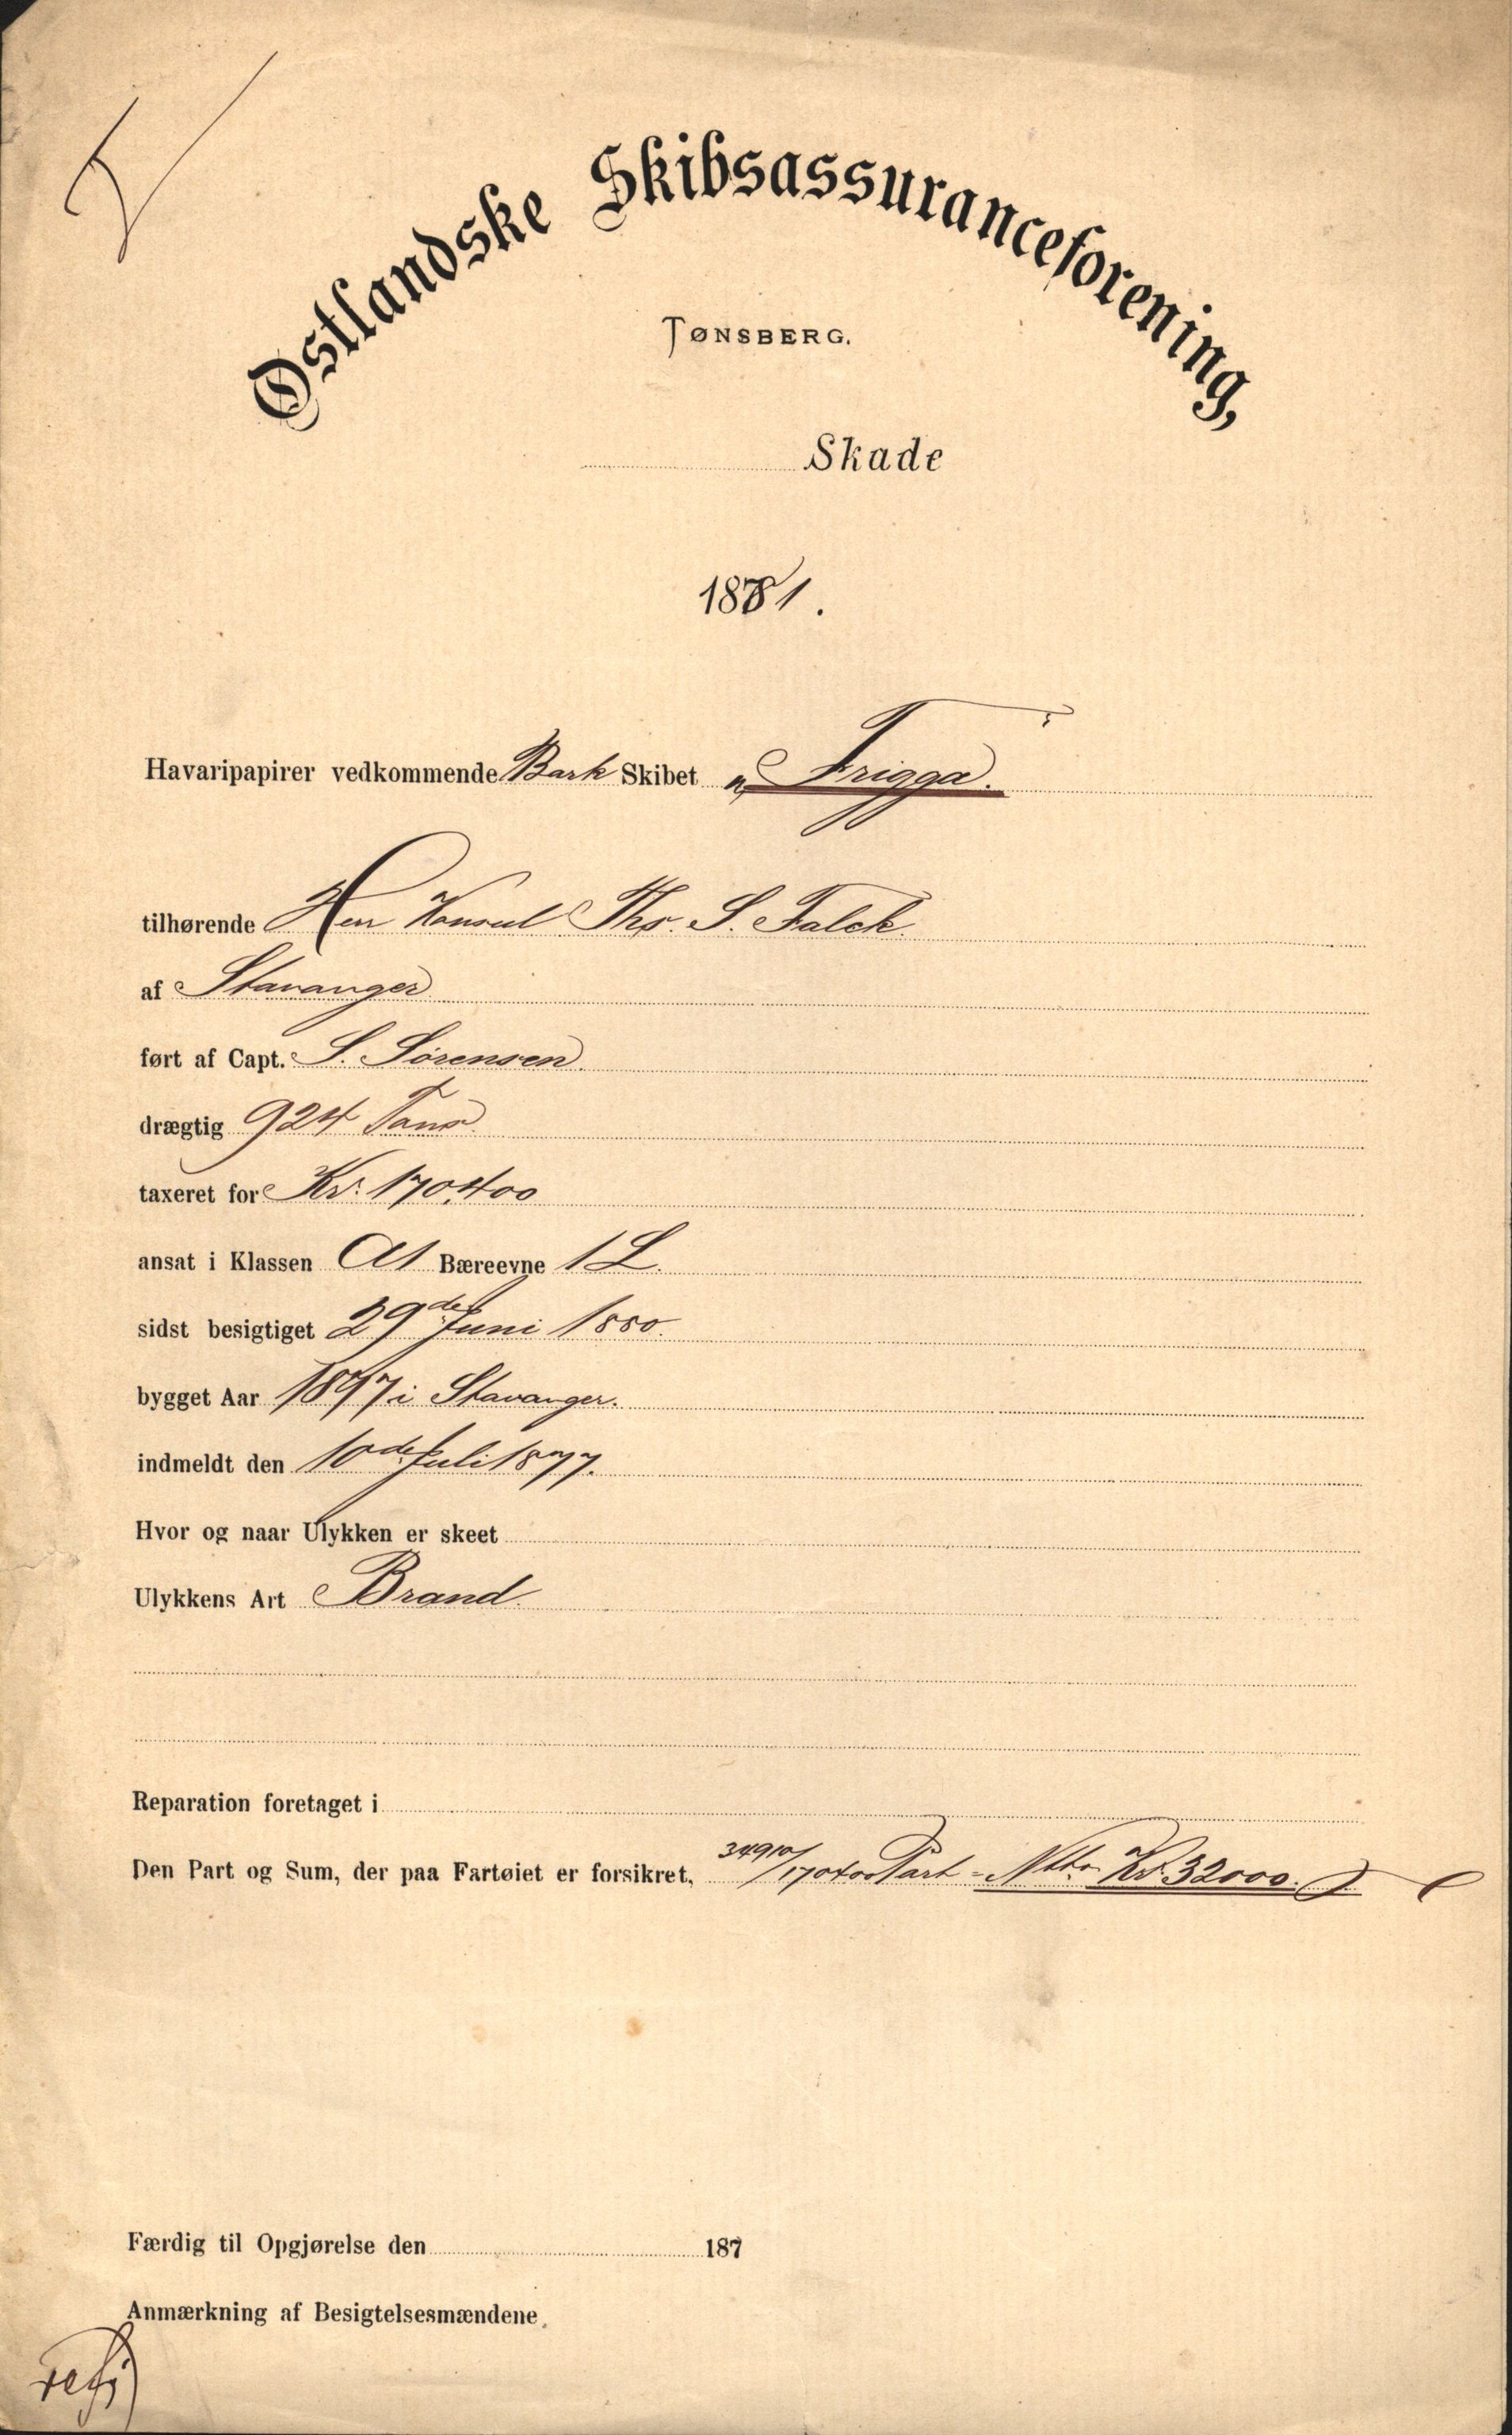 Østlandske Skibsassuranceforening,
TØNSBERG.
Skade
1881.
Havaripapirer vedkommende Bark Skibet „Frigga.
tilhørende Herr Konsul Ths. S. Falck.
af Stavanger
ført af Capt. S. Sörensen.
drægtig 924 Tons.
taxeret for Kr. 170,400
ansat i Klassen A1 Bæreevne 1 L.
sidst besigtiget 29de Juni 1880.
bygget Aar 1877 i Stavanger.
indmeldt den 10de Juli 1877.
Hvor og naar Ulykken er skeet
Ulykkens Art Brand.
Reparation foretaget i
Den Part og Sum, der paa Fartøiet er forsikret, 34910/170400 Part = Ntto. Kr. 32000.
Færdig til Opgjørelse den 187
Anmærkning af Besigtelsesmændene.